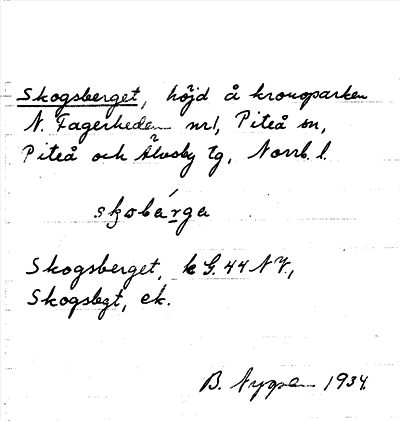 Skogsberget, höjd å kronoparken
N. Fagerheden nr1, Piteå sn,
Piteå och Älvsby tg, Norrb. l.
skobárga
Skogsberget, k G. 44 NV.,
Skogsbgt, ek.
B. 1934.